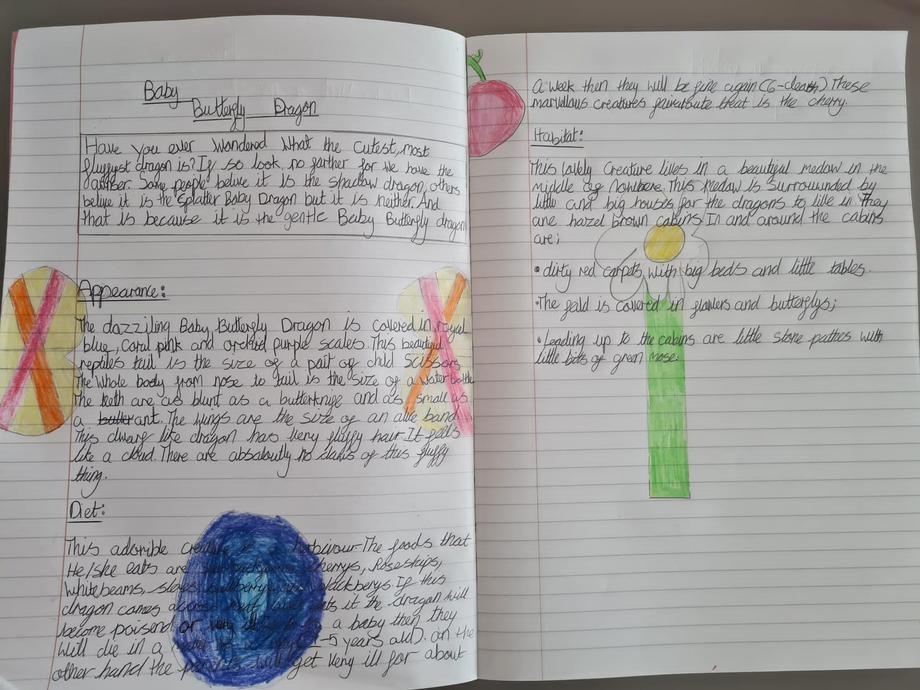 Baby
Butterfly Dragon
Have you ever Wondered What the cutest, most
fluffyst dragon is? If so look no farther for we have the
anser. Some people belive it is the shadow dragon, others
belive it is the splatter Baby Dragon but it is neither. And
that is because it is the gentle Baby Butterfly dragon
Appearance:
The dazziling Baby Butterfly Dragon is covered in royal
blue, coral pink and orched purple scales. This beautiful
reptiles tail is the size of a pair of child scissors
The whole body from nose to tail is the size of a water bottle
The teeth are as blunt as a butterknige and as small as
a ant. The wings are the size of an band
This dwarg like dragon has very fluffy hair. It feels
like a cloud. There are absaloutly no claws of this fluffy
thing.
Diet:
This adorible creature is a herbivour. The foods that
He/she eats are cherrys, Rosehips,
Whitebeams, sloes, and blackberys. If this
dragon comes across it the dragon will
become poisend or very a baby then they
will die in a 5 years old). on the
other hand the parents will get very ill for about
a week then they will be fine again (6-death). These
marvellous creatures faivaroute treat is the cherry.
Habitat:
This lovely creature lives in a beautiful medaw in the
middle of nowhere. This medaw is surrounded by
little and big houses for the dragons to live in. They
are hazel brown cabins. In and around the cabins
are;
• dirty red carpets with big beds and little tables.
• The feild is covered in flowers and butterflys;
• Leading up to the cabins are little stone pathes with
little bits of green mose.